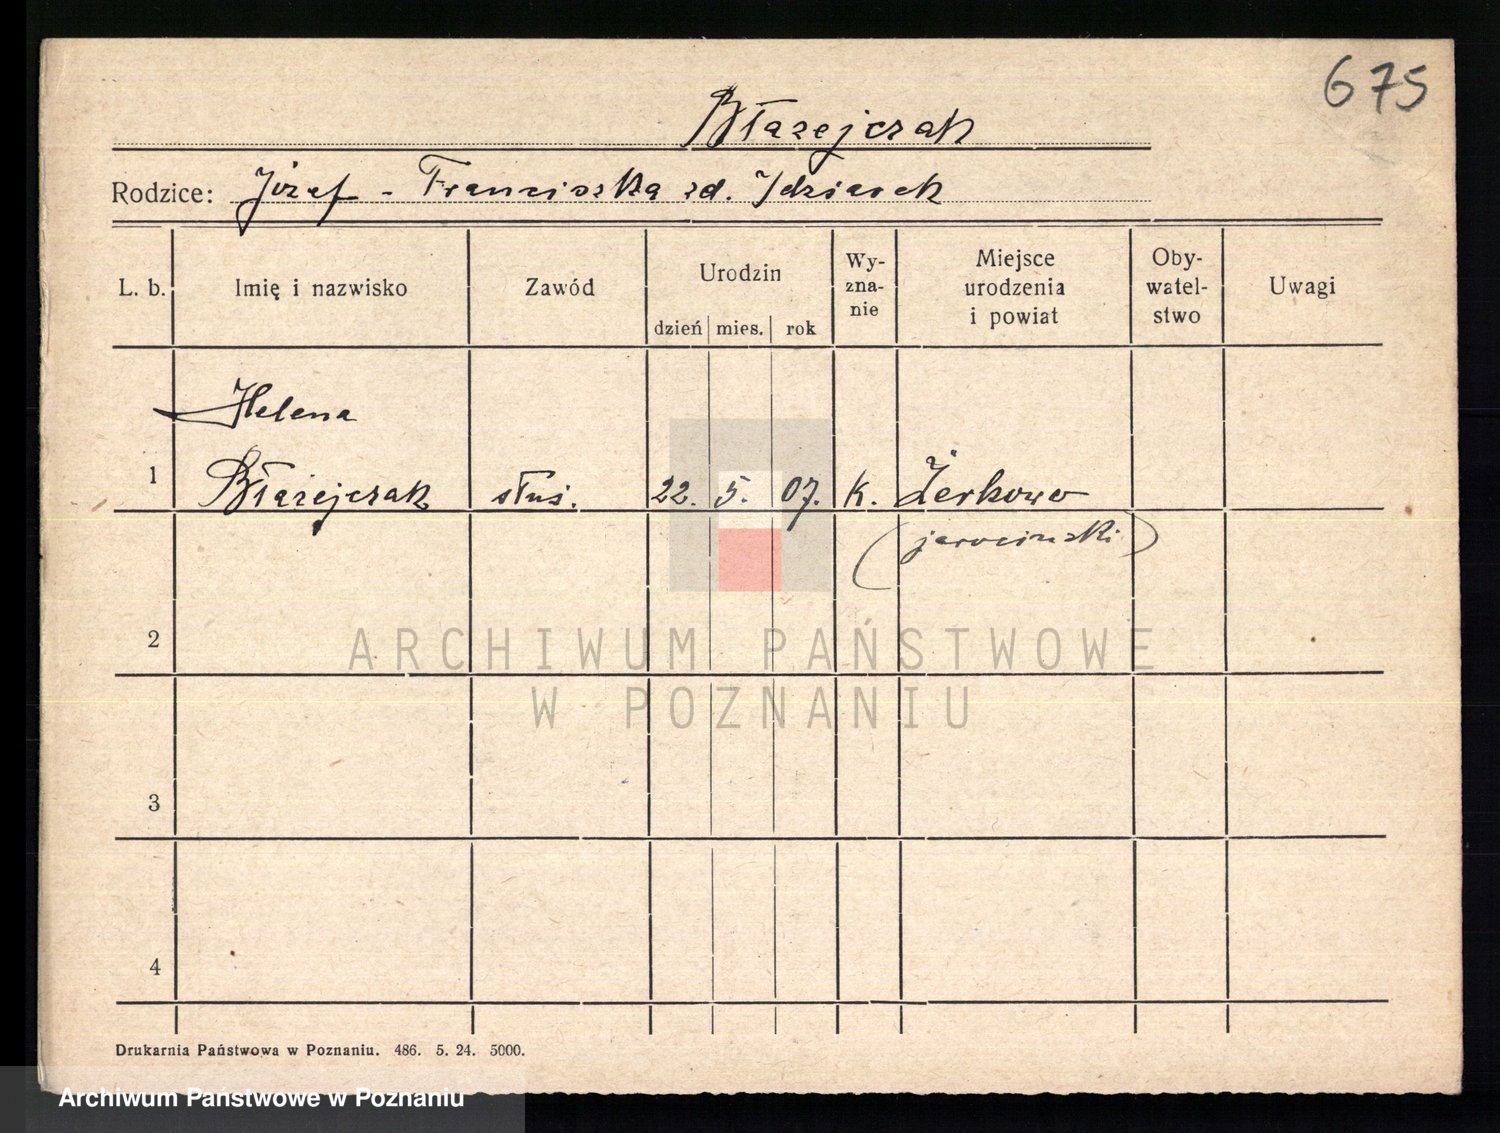 675
Błażejczak
Rodzice: Józef - Franciszka zd. Idziasek
L. b. Imię i nazwisko Zawód Urodzin dzień mies. rok Wy-zna-nie Miejsce urodzenia i powiat Oby-watel-stwo Uwagi
Helena
1 Błażejczak służ. 22. 5. 07. k. Żerkowo
(jarociński)
2
ARCHIWUM PAŃSTWOWE
W POZNANIU
3
4
Drukarnia Państwowa w Poznaniu. 486. 5. 24. 5000.
Archiwum Państwowe w Poznaniu